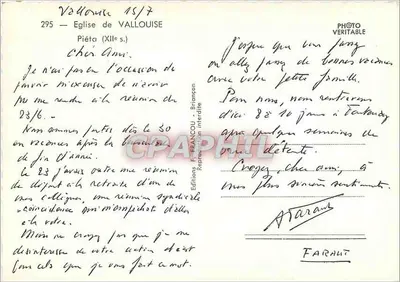 Vallouise 15/7
295 - Eglise de VALLOUISE
Piéta (XIIe s.)
PHOTO
VERITABLE
Cher Ami,
Je n'ai pas eu l'occasion de
pouvoir m'excuser de n'avoir
pu me rendre à la réunion du
23/6.
Nous sommes partis dès le 30
en vacances après la
de fin d'année.
Le 23 j'avais outre une réunion
de départ à la retraite d'un de
mes collègues, une réunion syndicale
coïncidence qui m'empêchait d'aller
à la vôtre.
Mais ne croyez pas que je me
désintéresse de votre action
que je vous fait ce mot.
Editions F. FRANCOU - Briançon
Reproduction interdite
CPAPHIL.com
J'espère que vous
ou allez passer de bonnes vacances
avec votre petite famille.
Pour nous, nous rentrerons
d'ici 8 à 10 jours à
après quelques semaines de
détente.
Croyez, cher ami, à
mes plus sincères sentiments.
AFaraut
FARAUT